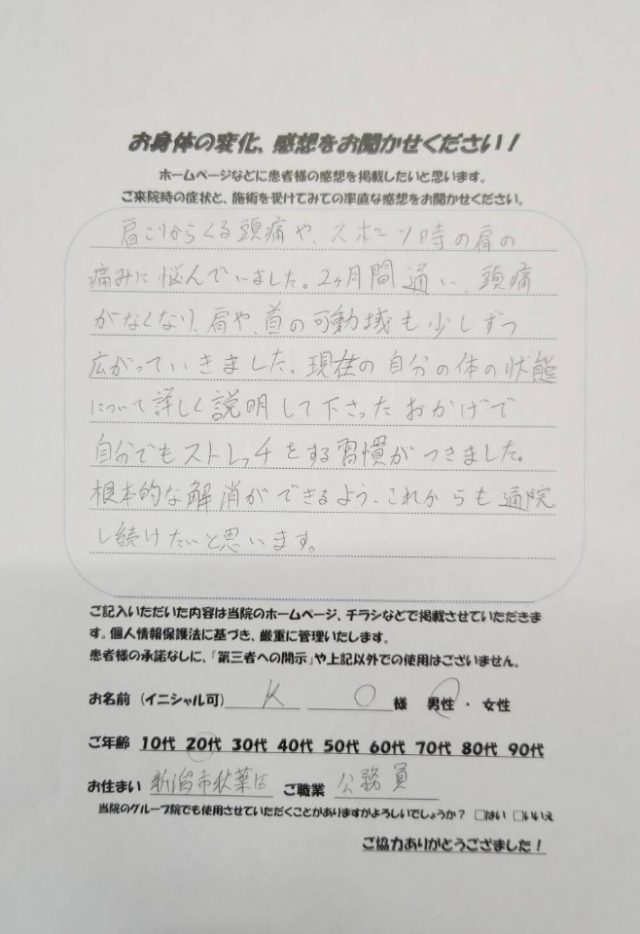 お身体の変化、感想をお聞かせください！
ホームページなどに患者様の感想を掲載したいと思います。
ご来院時の症状と、施術を受けてみての率直な感想をお聞かせください。
肩こりからくる頭痛や、スポーツ時の肩の
痛みに悩んでいました。2ヶ月間通い、頭痛
がなくなり、肩や、首の可動域も少しずつ
広がっていきました。現在の自分の体の状態
について詳しく説明して下さったおかげで
自分でもストレッチをする習慣がつきました。
根本的な解消ができるよう、これからも通院
し続けたいと思います。
ご記入いただいた内容は当院のホームページ、チラシなどで掲載させていただきま
す。個人情報保護法に基づき、厳重に管理いたします。
患者様の承諾なしに、「第三者への開示」や上記以外での使用はございません。
お名前（イニシャル可） K O 様 男性・女性
ご年齢 10代 20代 30代 40代 50代 60代 70代 80代 90代
お住まい 新潟市秋葉区 ご職業 公務員
当院のグループ院でも使用させていただくことがありますがよろしいでしょうか？ □はい □いいえ
ご協力ありがとうござました！